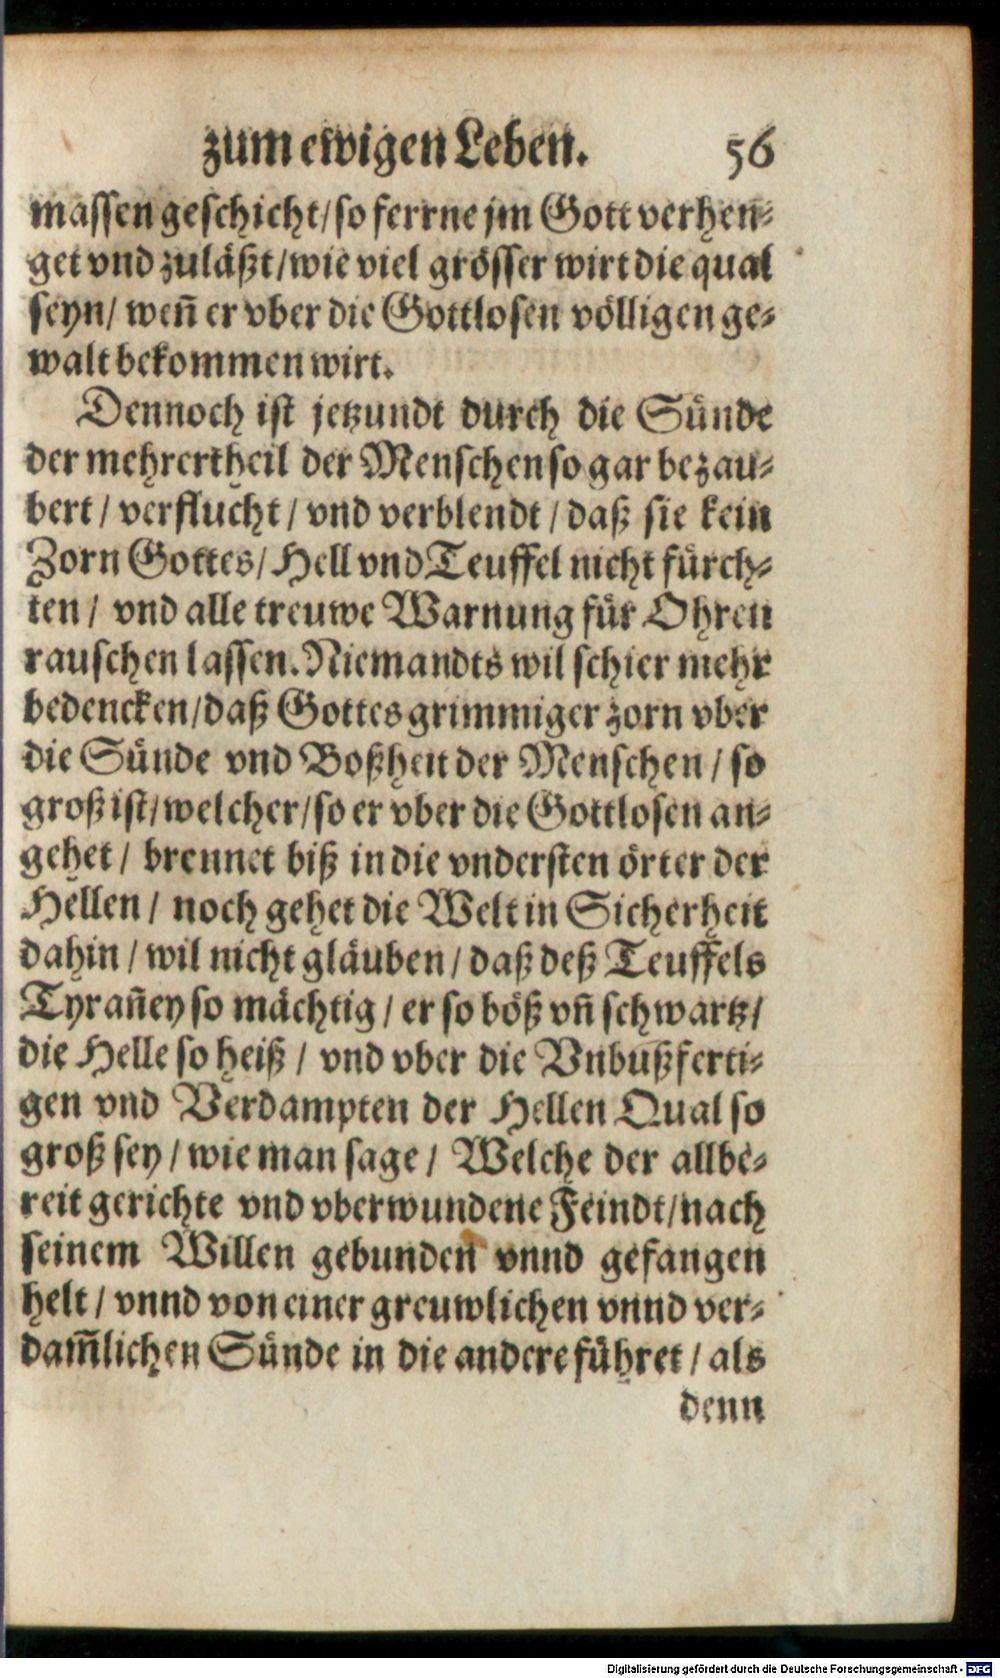 zum ewigen Leben. 56
massen geschicht/ so ferrne jm Gott verhen-
get vnd zuläßt/ wie viel grösser wirt die qual
seyn/ weñ er vber die Gottlosen völligen ge-
walt bekommen wirt.
Dennoch ist jetzundt durch die Sünde
der mehrertheil der Menschen so gar bezau-
bert/ verflucht/ vnd verblendt/ daß sie kein
Zorn Gottes/ Hell vnd Teuffel nicht fürch-
ten/ vnd alle treuwe Warnung für Ohren
rauschen lassen. Niemandts wil schier mehr
bedencken/ daß Gottes grimmiger zorn vber
die Sünde vnd Boßheit der Menschen/ so
groß ist/ welcher/ so er vber die Gottlosen an-
gehet/ brennet biß in die vndersten örter der
Hellen/ noch gehet die Welt in Sicherheit
dahin/ wil nicht gläuben/ daß deß Teuffels
Tyrañey so mächtig/ er so böß vñ schwartz/
die Helle so heiß/ vnd vber die Vnbußferti-
gen vnd Verdampten der Hellen Qual so
groß sey/ wie man sage/ Welche der allbe-
reit gerichte vnd vberwundene Feindt/ nach
seinem Willen gebunden vnnd gefangen
helt/ vnnd von einer greuwlichen vnnd ver-
dam̃lichen Sünde in die andere führet/ als
denn
Digitalisierung gefördert durch die Deutsche Forschungsgemeinschaft - DFG